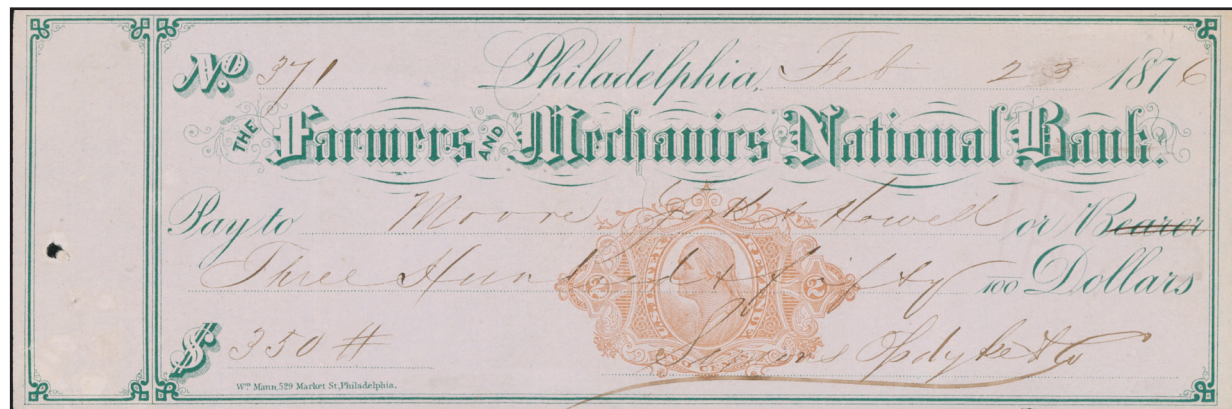 No 371 Philadelphia, Feb 23 1876
THE Farmers AND Mechanics National Bank.
Pay to Moore York & Howell or Bearer
Three Hundred & Fifty 100 Dollars
U.S. INTER. REVENUE
2 2
$ 350 #
Simons Opdyke & Co
Wm Mann, 529 Market St, Philadelphia.